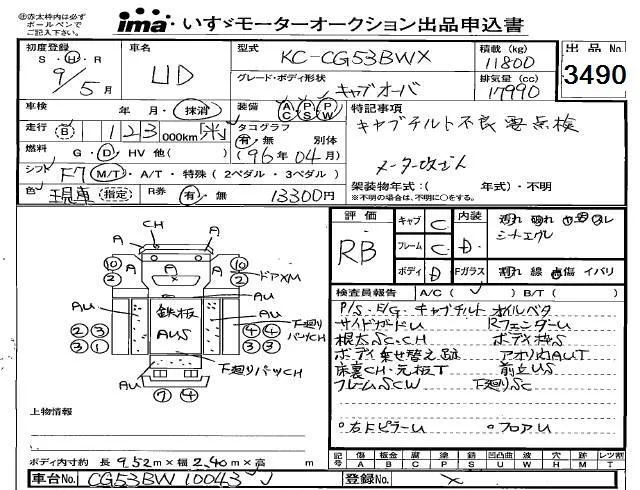 ㊟赤太枠内は必ず
ボールペンで
ご記入下さい。
ima いすゞモーターオークション出品申込書
初度登録 車名 型式 KC-CG53BWX 積載 (kg) 11800 出品No.
S・H・R 9/5月 UD グレード・ボディ形状 キャブオーバ 排気量 (cc) 17990 3490
車検 年 月・抹消 装備 AC PS PW 特記事項
走行 (B) 123 000km 米 タコグラフ 有・無 別体 キャブチルト不良 要点検
燃料 G・D・HV 他( ) (96年04月) メーター改ざん
シフト F7 M/T・A/T・特殊 (2ペダル・3ペダル) 架装物年式:( 年式)・不明
色 現車 (指定) R券 有・無 13300円 ※不明の場合は、不明に○をする。
評価 RB キャブ C 内装
シートエグレ
フレーム C D
ボディ D Fガラス 割れ 線 点傷 イバリ
検査員報告 A/C( ) B/T( )
P/S・E/G・キャブチルト オイルベタ
サイドガードU Rフェンダーu
根太SC.CH ボディ枠S
ボディ乗せ替え跡 アオリ内AUT
床裏CH・元板T 前立US
フレームSCW 下廻りSC
○右ドピラーu ○フロアu
CH
A A
A A
⑩ ⑩
② ② ドアXM
A
AU AU
鉄板
AUS
② ③ ④ ④ 下廻り
③ ① ③ ③ パーツCH
下廻りパーツCH
AU
⑦ ④
上物情報
ボディ内寸約 長 9.52m×幅 2.40m×高 m
記号 傷 A 板金 B 腐 C 塗 P 錆 S 凹凸曲 U 波 W 穴 H 欠 M レツ割 T
車台No. CG53BW 10043 登録No. ×